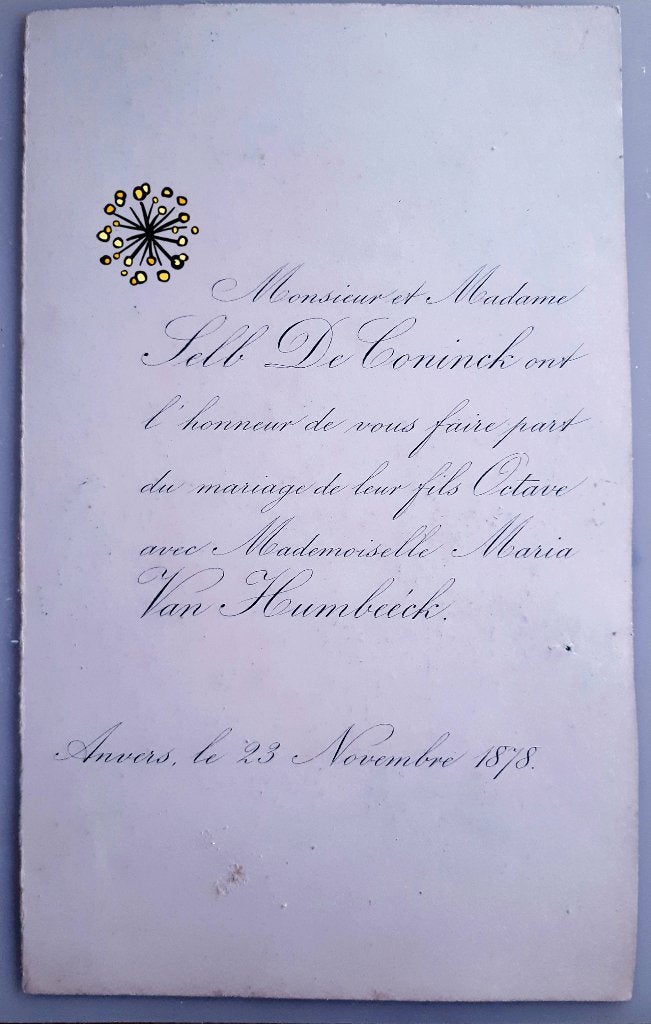 Monsieur et Madame
Selb De Coninck ont
l'honneur de vous faire part
du mariage de leur fils Octave
avec Mademoiselle Maria
Van Humbeéck.
Anvers, le 23 Novembre 1878.